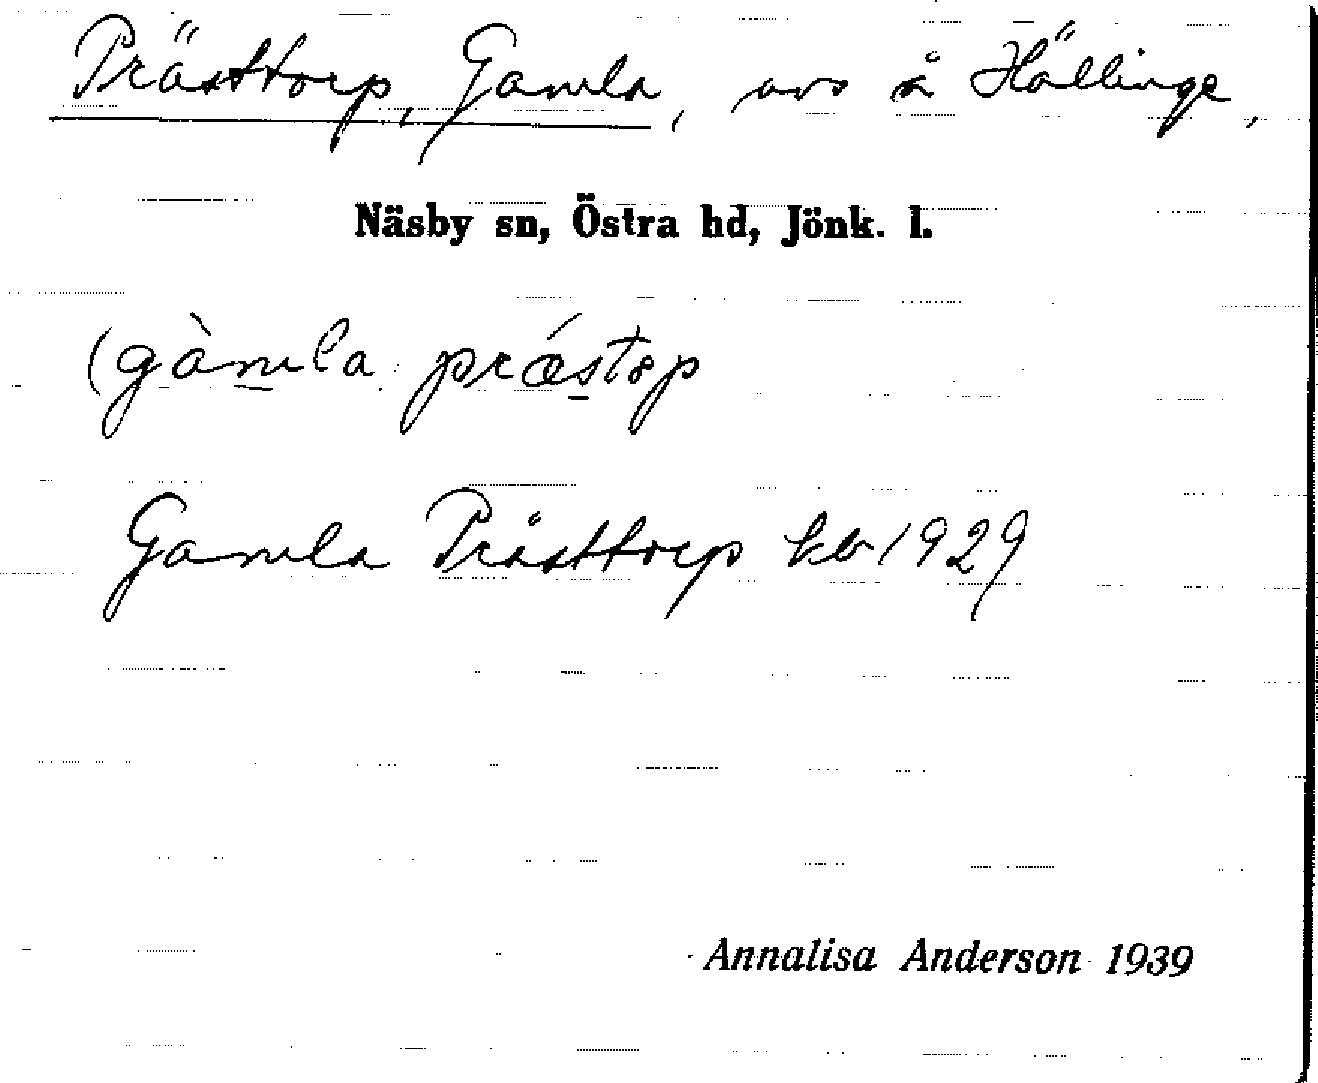 Prästtorp, Gamla, avs å Hällinge,
Näsby sn, Östra hd, Jönk. l.
(gàmla prǽstop
Gamla Prästtorp kb 1929
Annalisa Anderson 1939